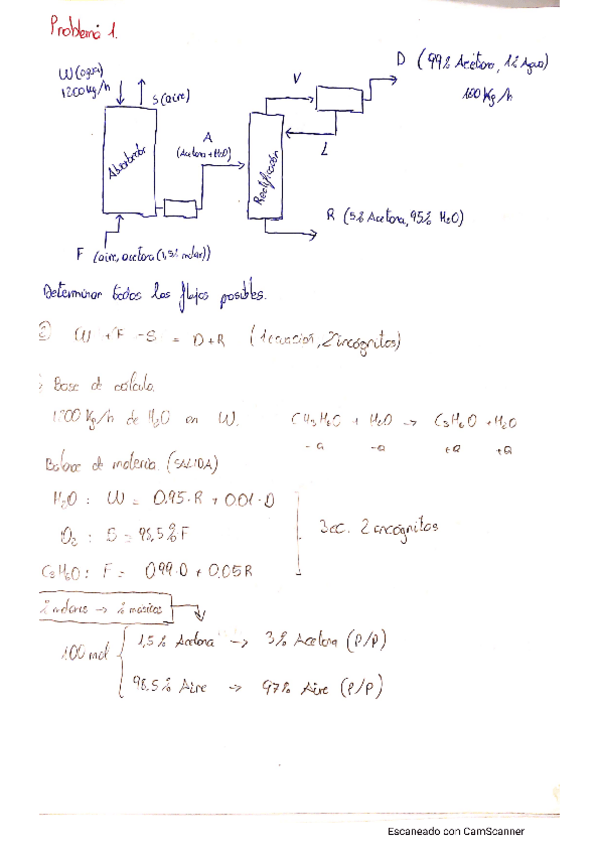 Problema 1.
W (agua)
1200 Kg/h
S (aire)
Absorbedor
A
(Acetona + H2O)
F (aire, acetona (1,5% molar))
V
L
Rectificador
D (99% Acetona, 1% Agua)
100 Kg/h
R (5% Acetona, 95% H2O)
Determinar todos los flujos posibles.
W + F - S = D + R (1 ecuación, 2 incógnitas)
Base de cálculo.
1200 Kg/h de H2O en W.
C3H6O + H2O → C3H6O + H2O
-a -a +a +a
Balance de materia (SALIDA)
H2O : W = 0.95·R + 0.01·D
O2 : S = 98,5% F
C3H6O : F = 0.99·D + 0.05R
3 ec. 2 incógnitas
% molares → % másicos
100 mol
1,5% Acetona → 3% Acetona (P/P)
98.5% Aire → 97% Aire (P/P)
Escaneado con CamScanner